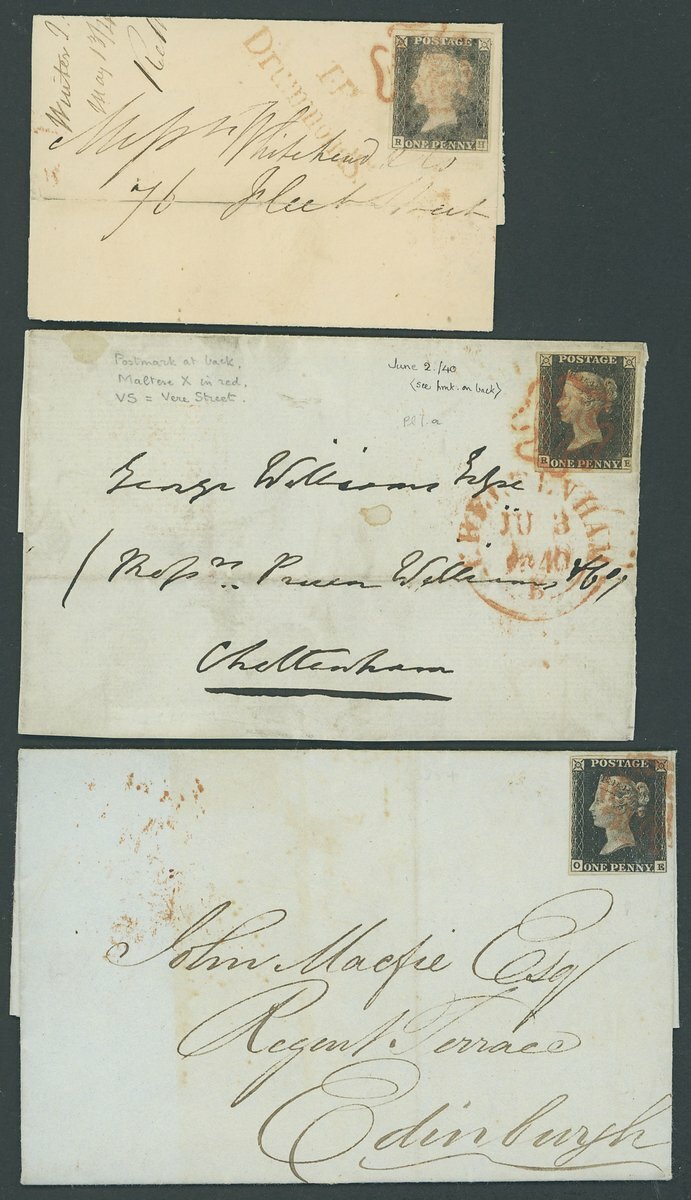 May 13/4
T.P
Drummond St
POSTAGE
R H
ONE PENNY
Messrs Whitehead & Co
76 Fleet Street
Postmark at back.
Maltese X in red.
VS = Vere Street.
June 2./40
(see pmk. on back)
Pl 1.a
POSTAGE
R E
ONE PENNY
CHELTENHAM
JU 3
1840
B
George Williams Esqre
(Messrs. Williams & Co)
Cheltenham
POSTAGE
O E
ONE PENNY
John Macfie Esq
Regent Terrace
Edinburgh